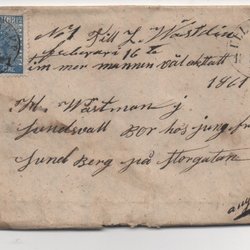 No 1 Till L. Wästlin
Februari 16 te
im mor munnen väl
1861
H. Wästman j.
Sundsvall Bor hos jung. fru
Sund Berg på Storgatan